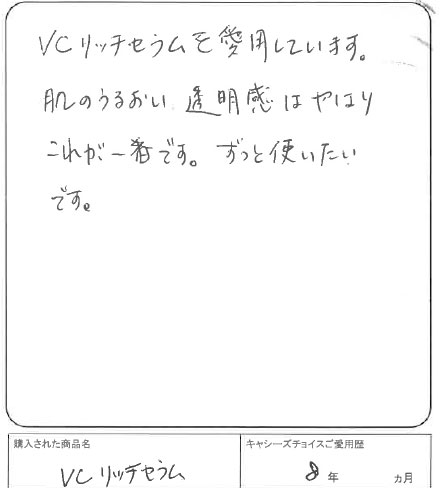 VCリッチセラムを愛用しています。
肌のうるおい、透明感はやはり
これが一番です。ずっと使いたい
です。
購入された商品名
VCリッチセラム
キャシーズチョイスご愛用歴
8年 カ月